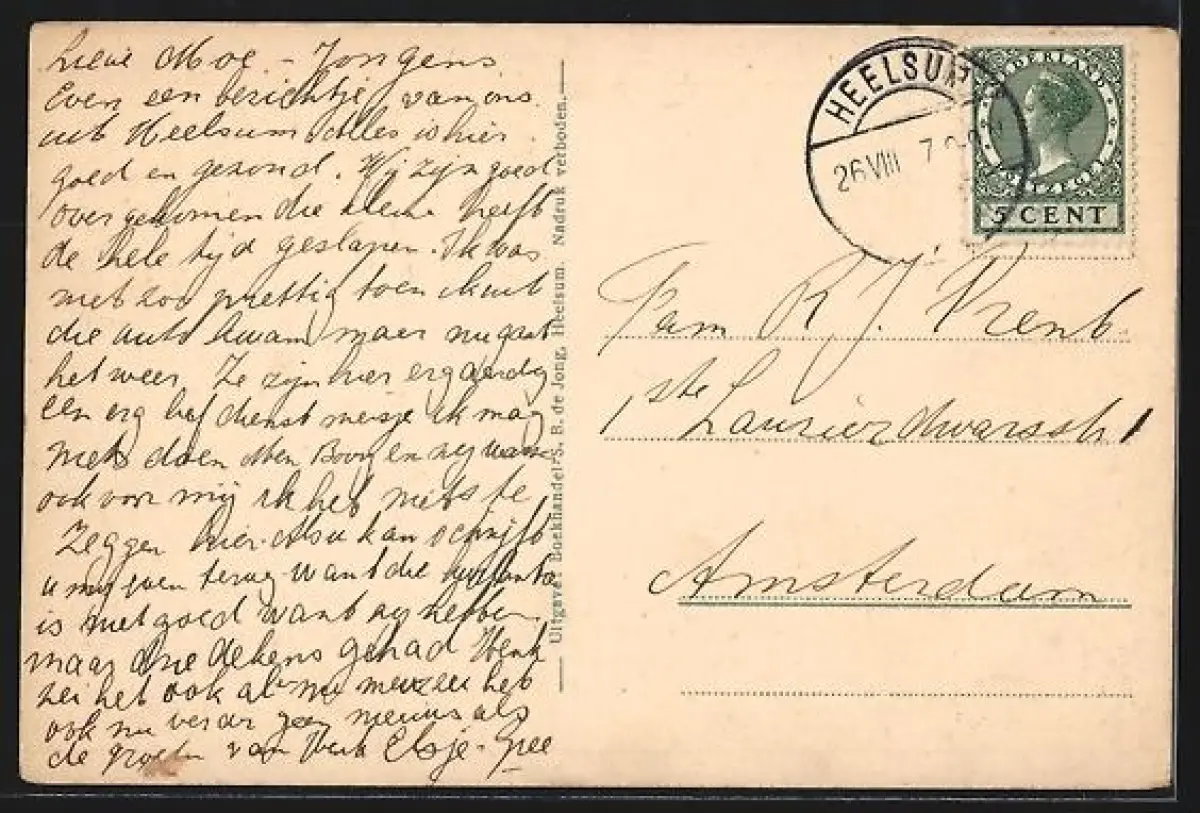 Lieve Moe. - Jongens
Even een berichtje van ons.
uit Heelsum Alles is hier
goed en gezond. Wij zijn goed
over gekomen die kleine heeft
de hele tijd geslapen. Ik was
niet zoo prettig toen ik uit
die auto kwam maar nu gaat
het weer. Ze zijn hier erg aardig
een erg lief dienst meisje ik mag
niets doen Men en zeg
ook voor mij ik heb niets te
zeggen hier. Alsu kan schrijft
u mij even terug want die
is niet goed want wij hebben
maar drie dekens gehad Henk
zei het ook al
ook nu verder geen nieuws als
de groeten van Henk Elsje - Gree
Uitgave: Boekhandel S. B. de Jong, Heelsum. Nadruk verboden.
HEELSUM
26 VIII 7
NEDERLAND
POSTZEGEL
5 CENT
Fam R J.
1ste Laurierdwarsstr 1
Amsterdam